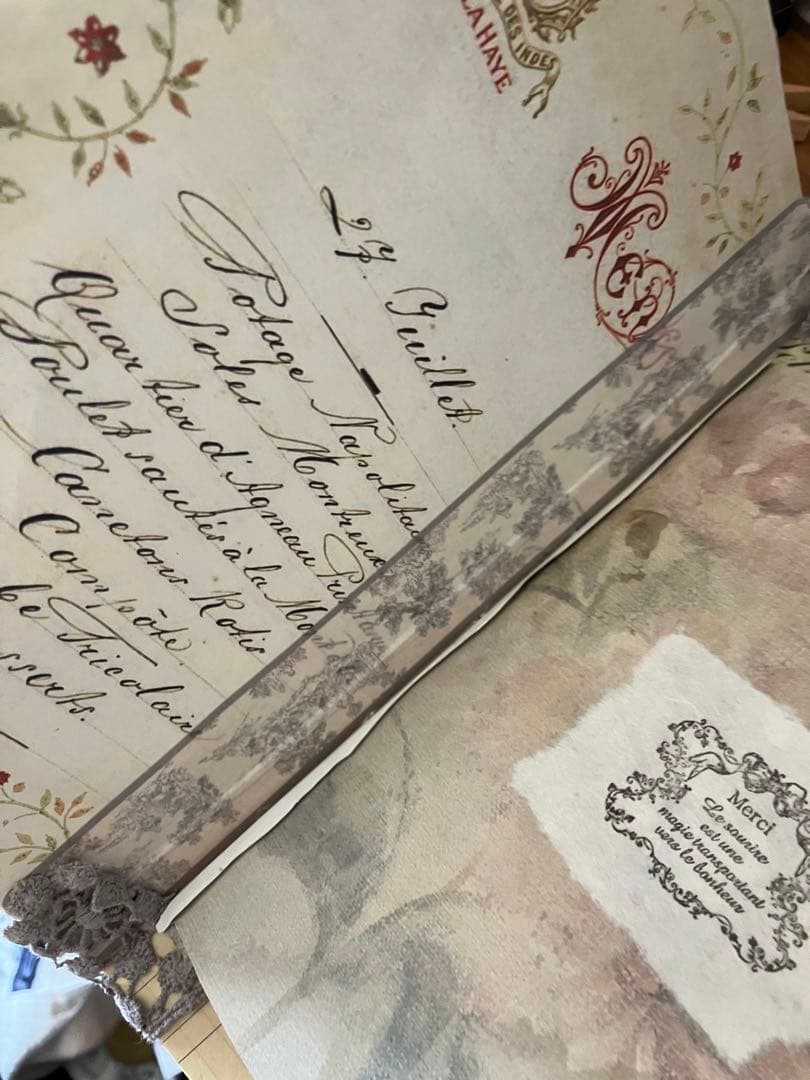 DES INDES
LA HAYE
27. Juillet.
Potage Napolitai
Soles Montreux
Quartier d'Agneau
Poulet sautés à la
Canetons Rotis
Compôte.
Tricolair
sserts.
Merci
Le sourire
est une
magie transportant
vers le bonheur